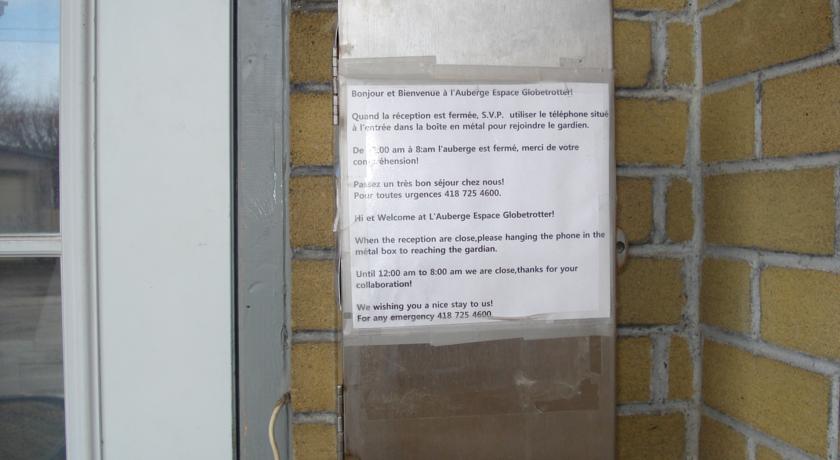 Bonjour et Bienvenue à l'Auberge Espace Globetrotter!
Quand la réception est fermée, S.V.P. utiliser le téléphone situé
à l'entrée dans la boîte en métal pour rejoindre le gardien.
De :00 am à 8:am l'auberge est fermé, merci de votre
compréhension!
Passez un très bon séjour chez nous!
Pour toutes urgences 418 725 4600.
Hi et Welcome at L'Auberge Espace Globetrotter!
When the reception are close,please hanging the phone in the
métal box to reaching the gardian.
Until 12:00 am to 8:00 am we are close,thanks for your
collaboration!
We wishing you a nice stay to us!
For any emergency 418 725 4600